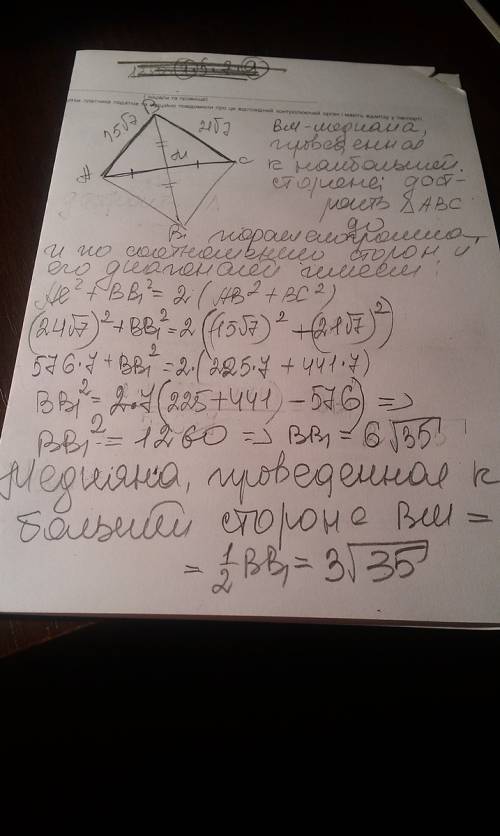 (ініціали та прізвище)
15√7
B
21√7
M
A
C
B₁
BM - медиана,
проведенная
к наибольшей
стороне; дост-
роить △ABC
до
параллелограмма,
и по соотношению сторон и
его диагоналей имеем:
AC² + BB₁² = 2(AB² + BC²)
(24√7)² + BB₁² = 2((15√7)² + (21√7)²)
576·7 + BB₁² = 2·(225·7 + 441·7)
BB₁² = 2·7(225 + 441) - 576) =>
BB₁² = 1260 => BB₁ = 6√35
Медиана, проведенная к
большей стороне BM =
= 1/2 BB₁ = 3√35